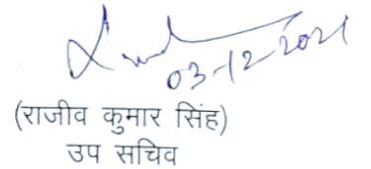 03-12-2021
(राजीव कुमार सिंह)
उप सचिव